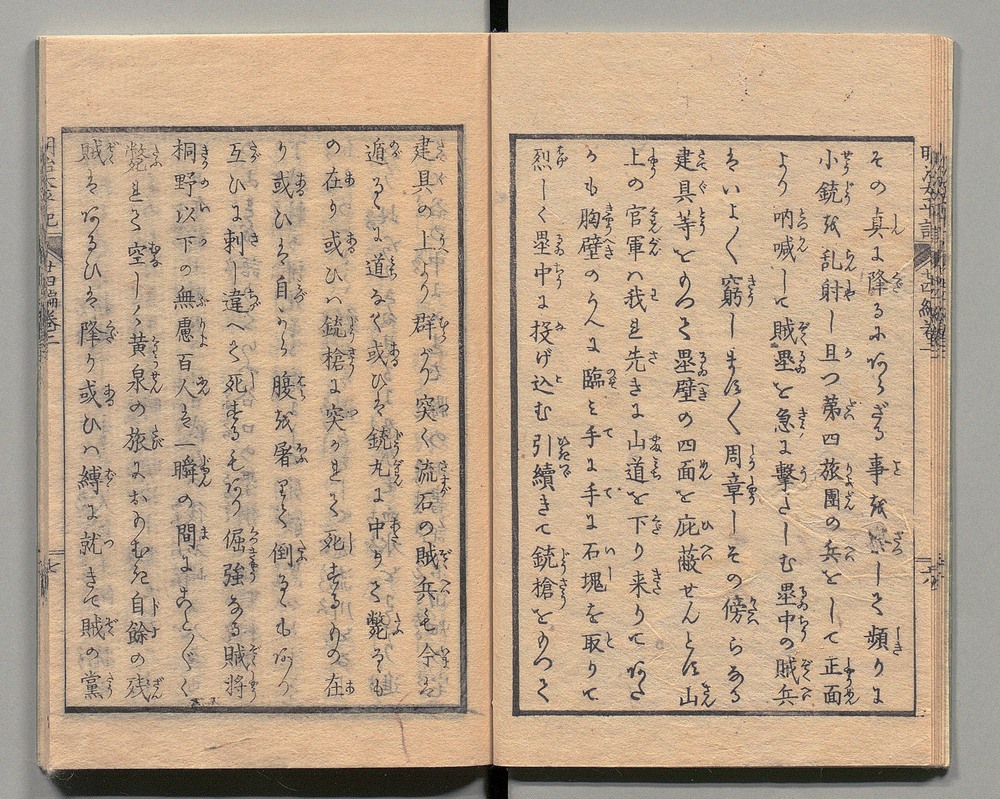 その真に降るにあらざる事を察しそ頻りに
小銃を乱射し且つ第四旅團の兵をして正面
より吶喊して賊塁を急に撃さしむ塁中の賊兵
はいよ〱窮します〱周章しその傍らなる
建具等をもつて塁壁の四面を庇蔽せんとす山
上の官軍ハ我れ先きに山道を下り来りてあた
かも胸壁のうへに臨ミ手に手に石塊を取りて
烈しく塁中に投げ込む引續きて銃槍をもつて
建具の上より群がり突く流石の賊兵も今は
遁るゝに道なく或ひは銃丸に中りて斃るゝも
の在り或ひハ銃槍に突かれて死するもの在
り或ひは自から腹を屠りて倒るゝもあり
互ひに刺し違へて死するもあり倔強なる賊将
桐野以下の無慮百人は一瞬の間にこと〲く
斃れて空しく黄泉の旅におもむき自餘の残
賊はあるひは降り或ひハ縛に就きて賊の黨
明治太平記
廿四編巻二